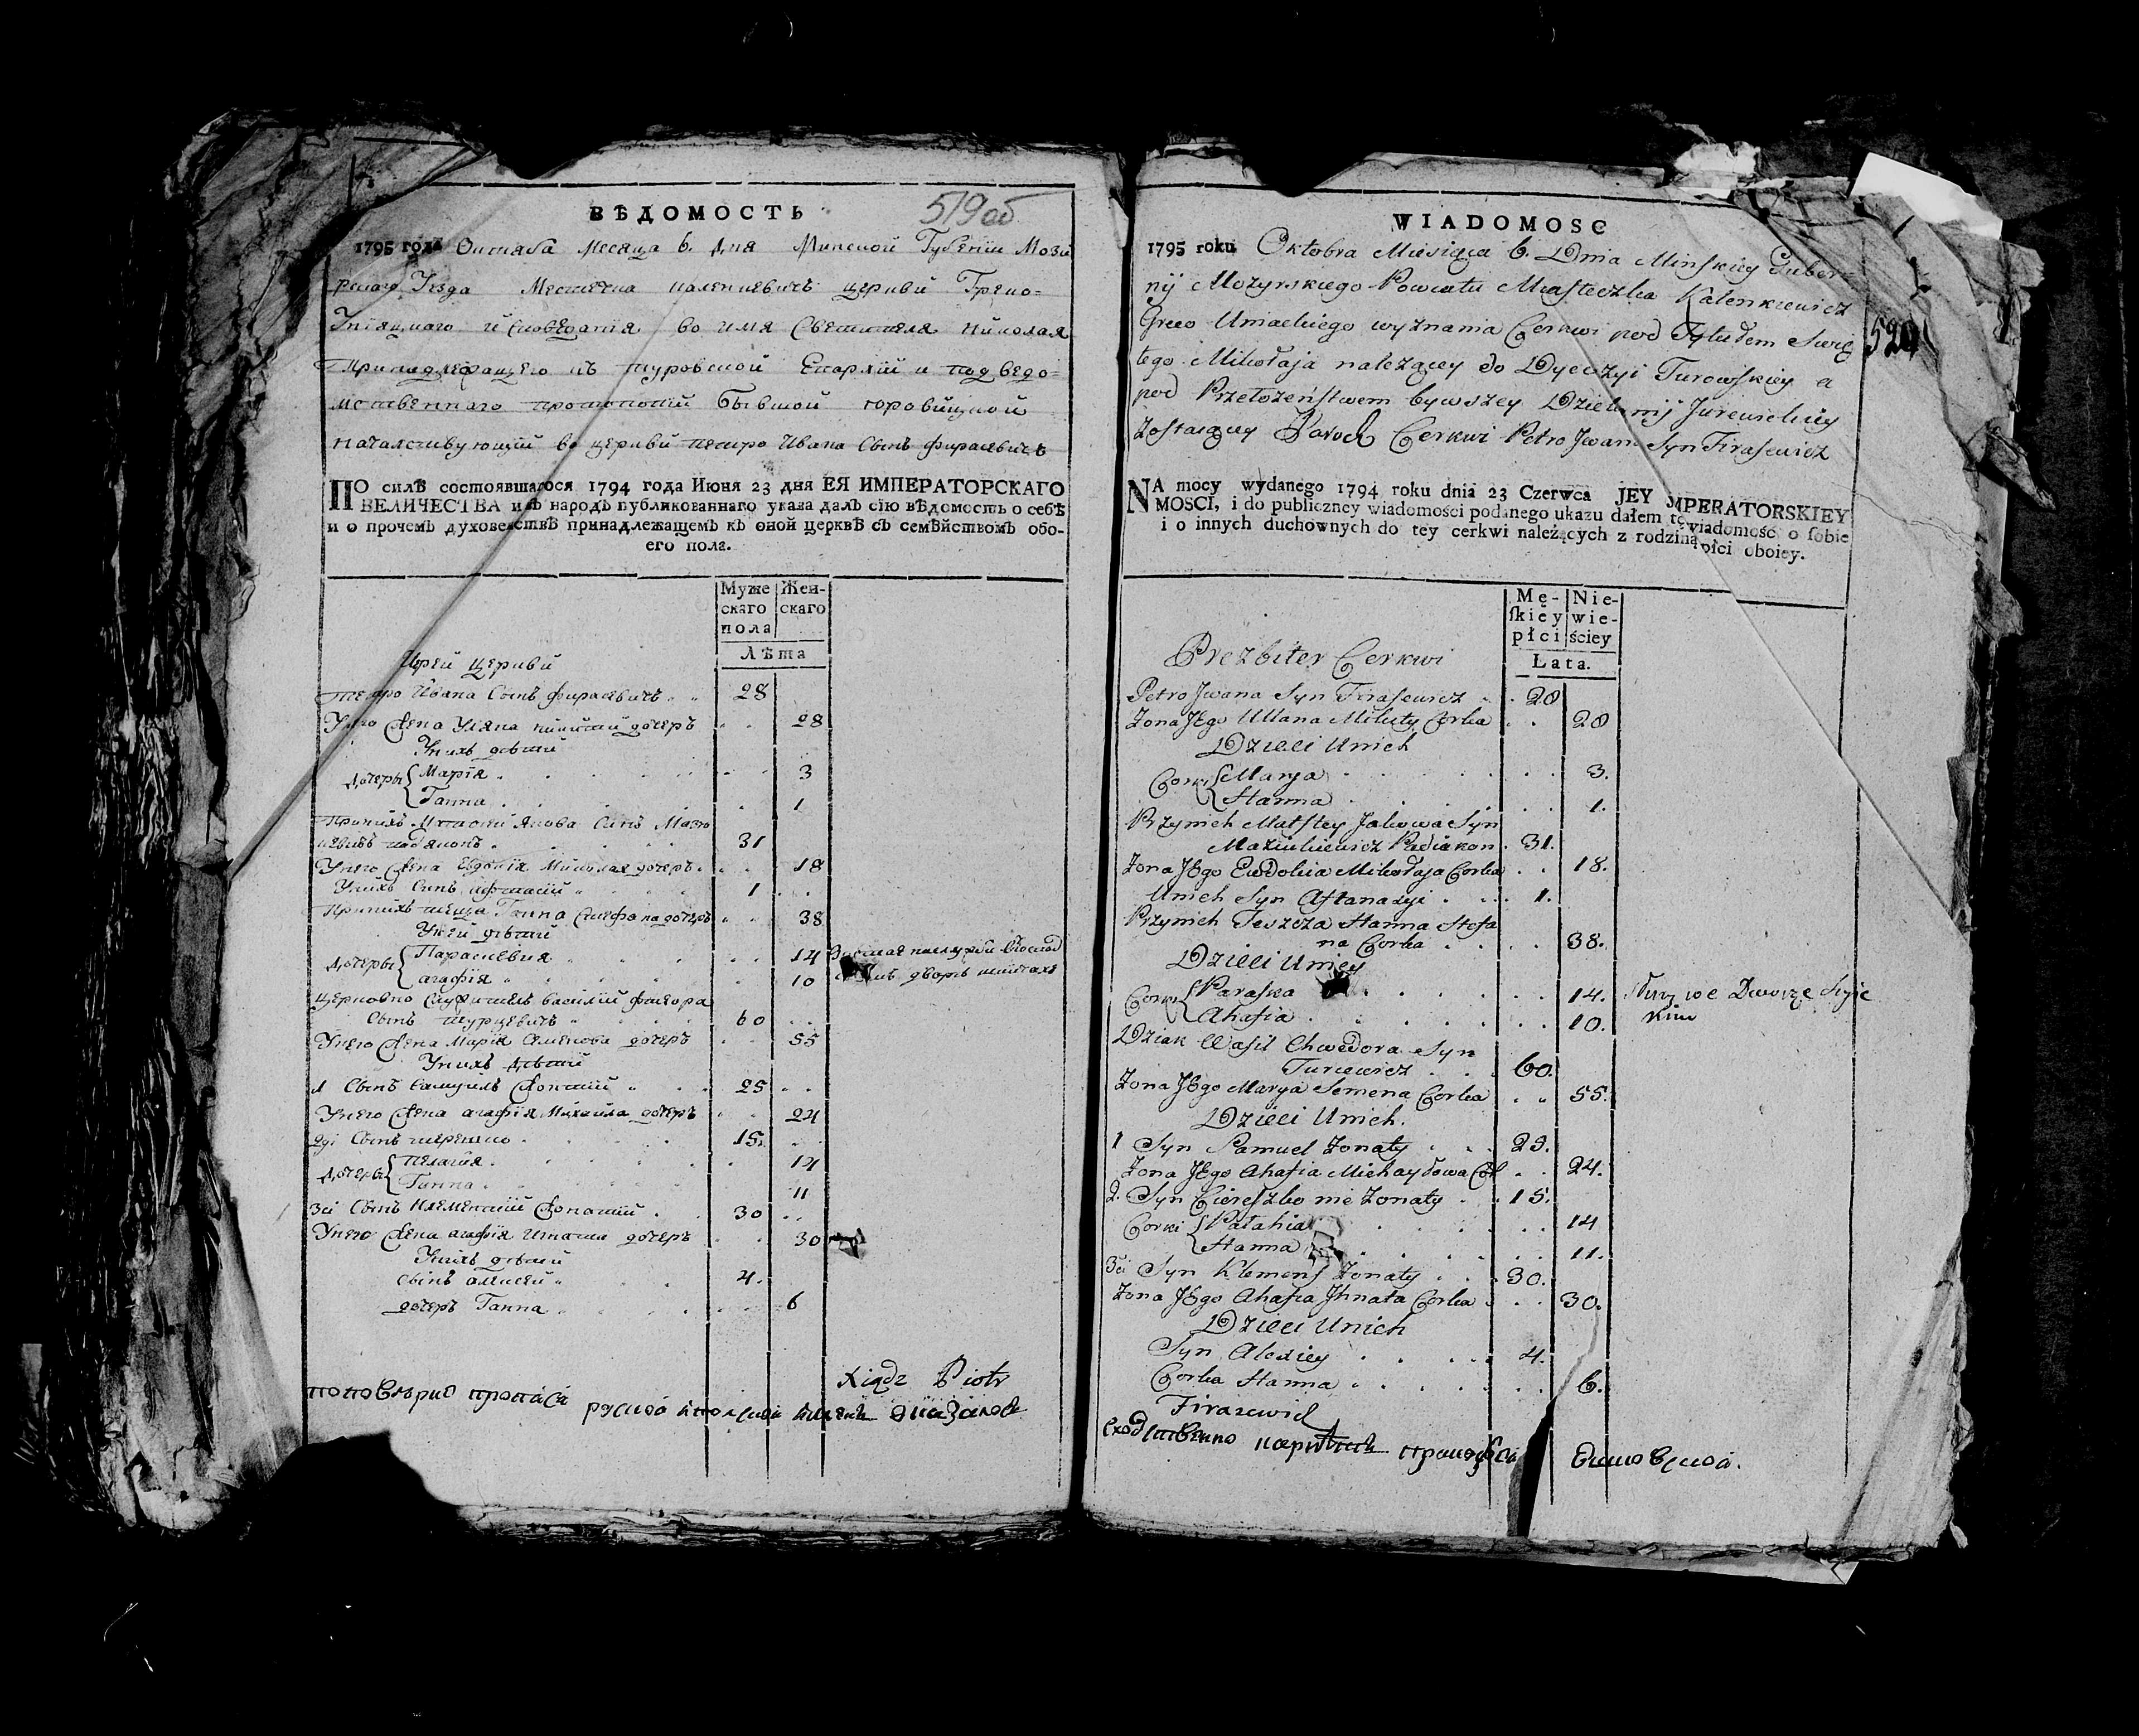 ВѢДОМОСТЬ
519 об
1795 года Октяба Месяца 6. Дня Минской Губернїи Мози
рскаго Уезда Местечка каленкевичъ церкви Греко=
Унїяцкаго исповеданїя во имя Светителя николая
Принадлежащего къ туровской Епархїи и подведо=
мственнаго протопопїи бывшой
началствующїй во церкви петро Ивана Сынъ фирасевичъ
ПО силѣ состоявшагося 1794 года Июня 23 дня ЕЯ ИМПЕРАТОРСКАГО
ВЕЛИЧЕСТВА и въ народъ публикованнаго указа далъ сїю вѣдомость о себѣ
и о прочемъ духовенствѣ принадлежащемъ къ оной церквѣ съ семѣйствомъ обо-
его пола.
Муже Жен-
скаго скаго
пола
Лѣта
Иерей церкви
петро Ивана Сынъ фирасевичъ 28
Унего Жена Уляна никиты дочеръ 28
Унихъ дѣти
дочеры Марїя 3
Ганна 1
Принихъ Матфей Якова Синъ Мазю
кевичъ падяконъ 31
Унего Жена Евдокїя Миколая дочеръ 18
Унихъ Синъ афтанасїй 1
Принихъ теща Ганна Стефана дочеръ 38
Уней дѣти
дочеры Параскевия 14
агафїя 10
Церковно Служитель василїй фтеора
Сынъ турцевичъ 60
Унего Жена Марїя Семенова дочеръ 55
Унихъ дѣтий
1 Сынъ Самуилъ Жонатий 25
Унего Жена агафїя Михайла дочеръ 24
2дї Сынъ терешко 15.
дочеры пелагїя 14
Ганна 11
3ї Сынъ клементїй Жонатий 30
Унего Жена агафїя Игната дочеръ 30
Унихъ дѣтий
сынъ алисей 4.
дочеръ Ганна 6
Xiądz Piotr
WIADOMOSC
520
1795 roku Oktobra Miesiąca 6. Dnia Minskiey Guber=
nij Mozyrskiego Powiatu Miasteczka Kalenkiewicz
Greco Uniackiego wyznania Cerkwi pod Tytułem Swię
tego Mikołaja należącey do Dyecezyi Turowskiey a
pod Przełożeństwem bywszey Dziekanij Jurewickiey
zostaiącey Paroch Cerkwi Petro Jwana Syn Firasewicz
NA mocy wydanego 1794 roku dnia 23 Czerwca JEY JMPERATORSKIEY
MOSCI, i do publiczney wiadomości podanego ukazu dałem tę wiadomość o sobie
i o innych duchownych do tey cerkwi należących z rodziną płci oboiey.
Mę- Nie-
skiéy wie-
płci ściey
Lata.
Prezbiter Cerkwi
Petro Jwana Syn Firasewicz 28
Zona Jego Ullana Mikity Corka 28
Dzieci Unich
Corki Marya 3.
Hanna 1.
Przynich Matfiey Jakowa Syn
Maziukiewicz Padiakon 31.
Zona Jego Ewdokia Mikołaja Corka 18.
Unich Syn Aftanazyi 1.
Przynich Teszcza Hanna Stefa
na Corka 38.
Dzieci Uniey
Corki Paraska 14.
Ahafia 10.
Dziak Wasil Chwedora Syn
Turcewicz 60.
Zona Jego Marya Semena Corka 55.
Dzieci Unich.
1 Syn Samuel Zonaty 25.
Zona Jego Ahafia Michayłowa Cor 24.
2. Syn Ciereszko nie Zonaty 15.
Corki Pałahia 14
Hanna 11.
3ci Syn Klemens Zonaty 30.
Zona Jego Ahafia Jhnata Corka 30.
Dzieci Unich
Syn Alexiey 4.
Corka Hanna 6.
Firazewicz